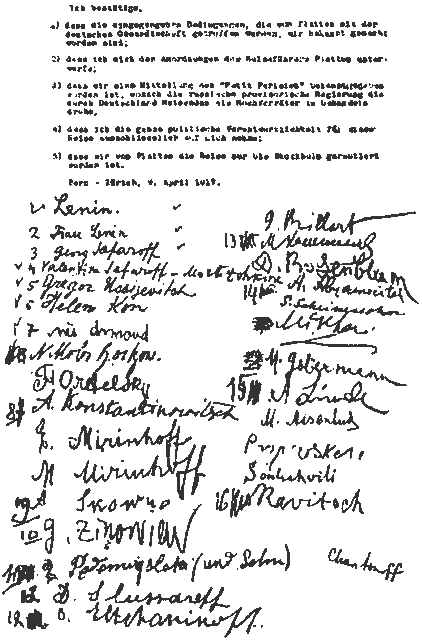 Ich bestätige,
1) dass die eingegangenen Bedingungen, die von Platten mit der
deutschen Gesandtschaft getroffen wurden, mir bekannt gemacht
worden sind;
2) dass ich mich den Anordnungen des Reiseführers Platten unter-
werfe;
3) dass mir eine Mitteilung des "Petit Parisien" bekanntgegeben
worden ist, wonach die russische provisorische Regierung die
durch Deutschland Reisenden als Hochverräter zu behandeln
drohe;
4) dass ich die ganze politische Verantwortlichkeit für diese
Reise ausschliesslich auf mich nehme;
5) dass mir von Platten die Reise nur bis Stockholm garantiert
worden ist.
Bern - Zürich, 9. April 1917.
1 Lenin.
2 Frau Lenin
3 Georg Safaroff
4 Valentina Safaroff - Martotschkine
5 Gregor Ussijevitch
6 Helen Kon
7 Armand
N. Boitzow.
F. Grebelsky
A. Konstantinowitsch
E. Mirinhoff
M. Mirinhoff
A. Skowno
10 G. Zinowiew
(und Sohn)
12 D. Slussareff
B. Eltchaninoff.
G. Brillant
13
D. Rosenblum
14 A. Abramovitch
S. Scheinessohn
M. Gobermann
15 A. Linde
M. Aisenhud
Pripevskij
Souliachvili
16 Ravitsch
Charitonoff